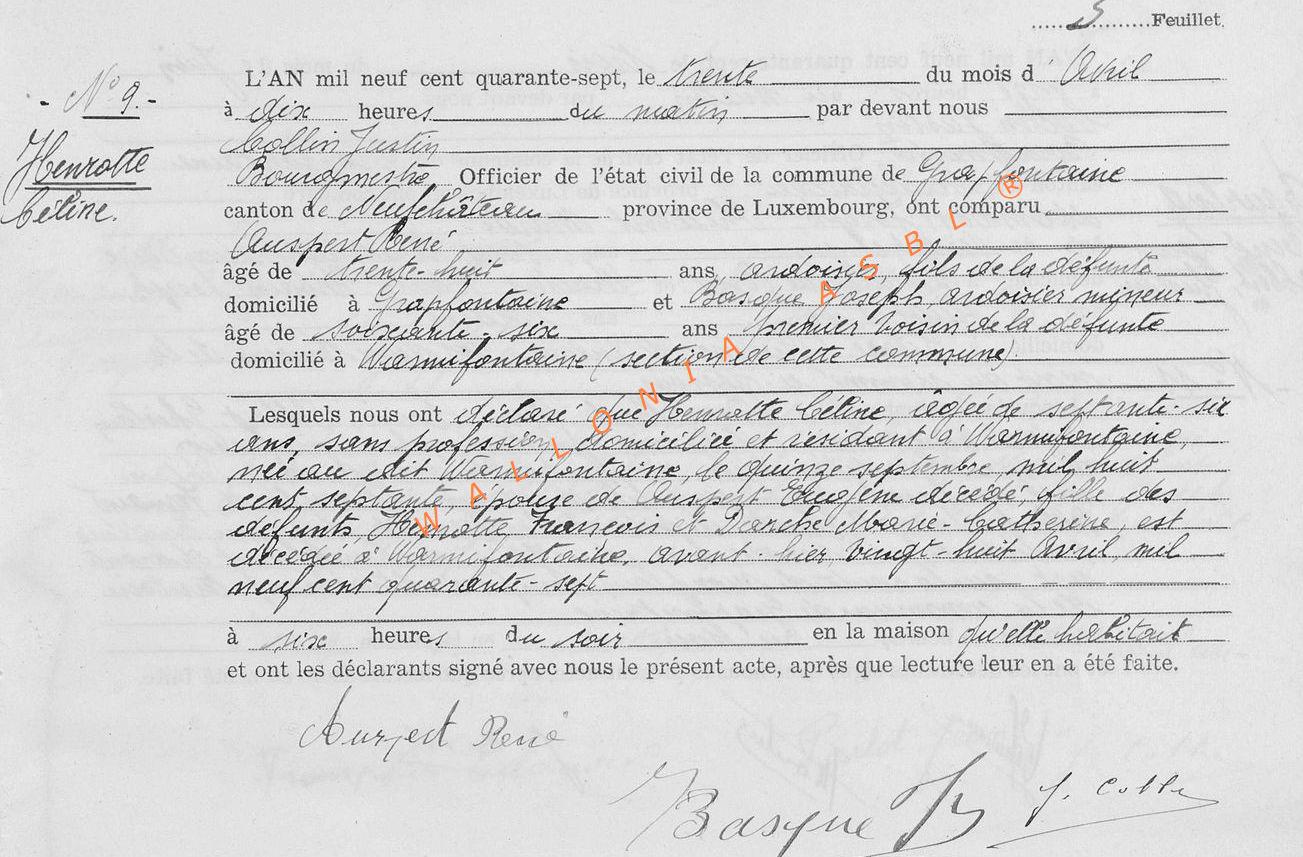 5 Feuillet
- N° 9. -
Henrotte
Céline.
L'AN mil neuf cent quarante-sept, le trente du mois d Avril
à dix heures du matin par devant nous
Collin Justin
Bourgmestre Officier de l'état civil de la commune de Grapfontaine
canton de Neufchâteau province de Luxembourg, ont comparu
Auspert René
âgé de trente-huit ans, ardoisier, fils de la défunte
domicilié à Grapfontaine et Basque Joseph, ardoisier mineur
âgé de soixante-six ans premier voisin de la défunte
domicilié à Warmifontaine (section de cette commune)
Lesquels nous ont déclaré que Henrotte Céline, âgée de septante-six
ans, sans profession, domiciliée et résidant à Warmifontaine,
née au dit Warmifontaine, le quinze septembre mil huit
cent septante, épouse de Auspert Eugène décédé, fille des
défunts, Henrotte, François et Marie-Catherine, est
décédée à Warmifontaine, avant-hier, vingt-huit Avril, mil
neuf cent quarante-sept
à six heures du soir en la maison qu'elle habitait
et ont les déclarants signé avec nous le présent acte, après que lecture leur en a été faite.
Auspert René
Basque J. Collin
WALLONIA ASBL ®